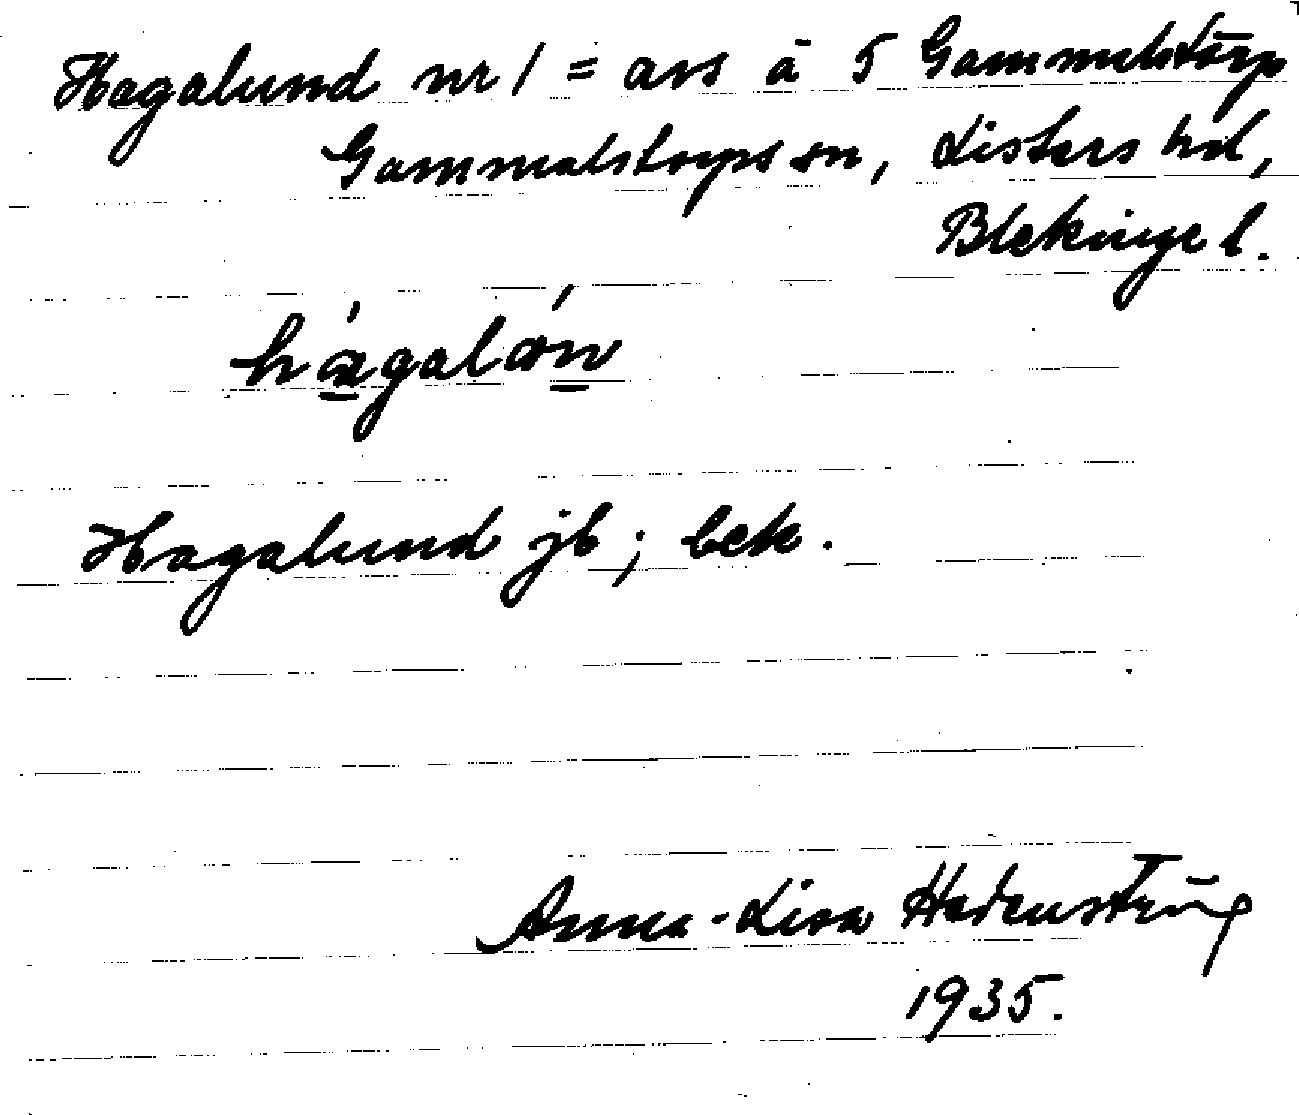 Hagalund nr 1 = avs å 5 Gammalstorp
Gammalstorps sn, Listers hd,
Blekinge l.
Hagalund jb; bek.
Anna-Lisa
1935.